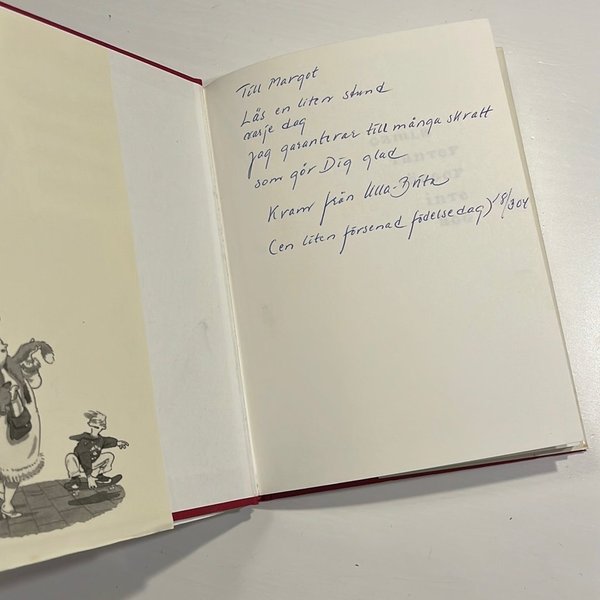 Till Margot
Läs en liten stund
varje dag
Jag garanterar till många skratt
som gör Dig glad
Kram från Ulla-Brita
(en liten försenad födelsedag) 18/3 04